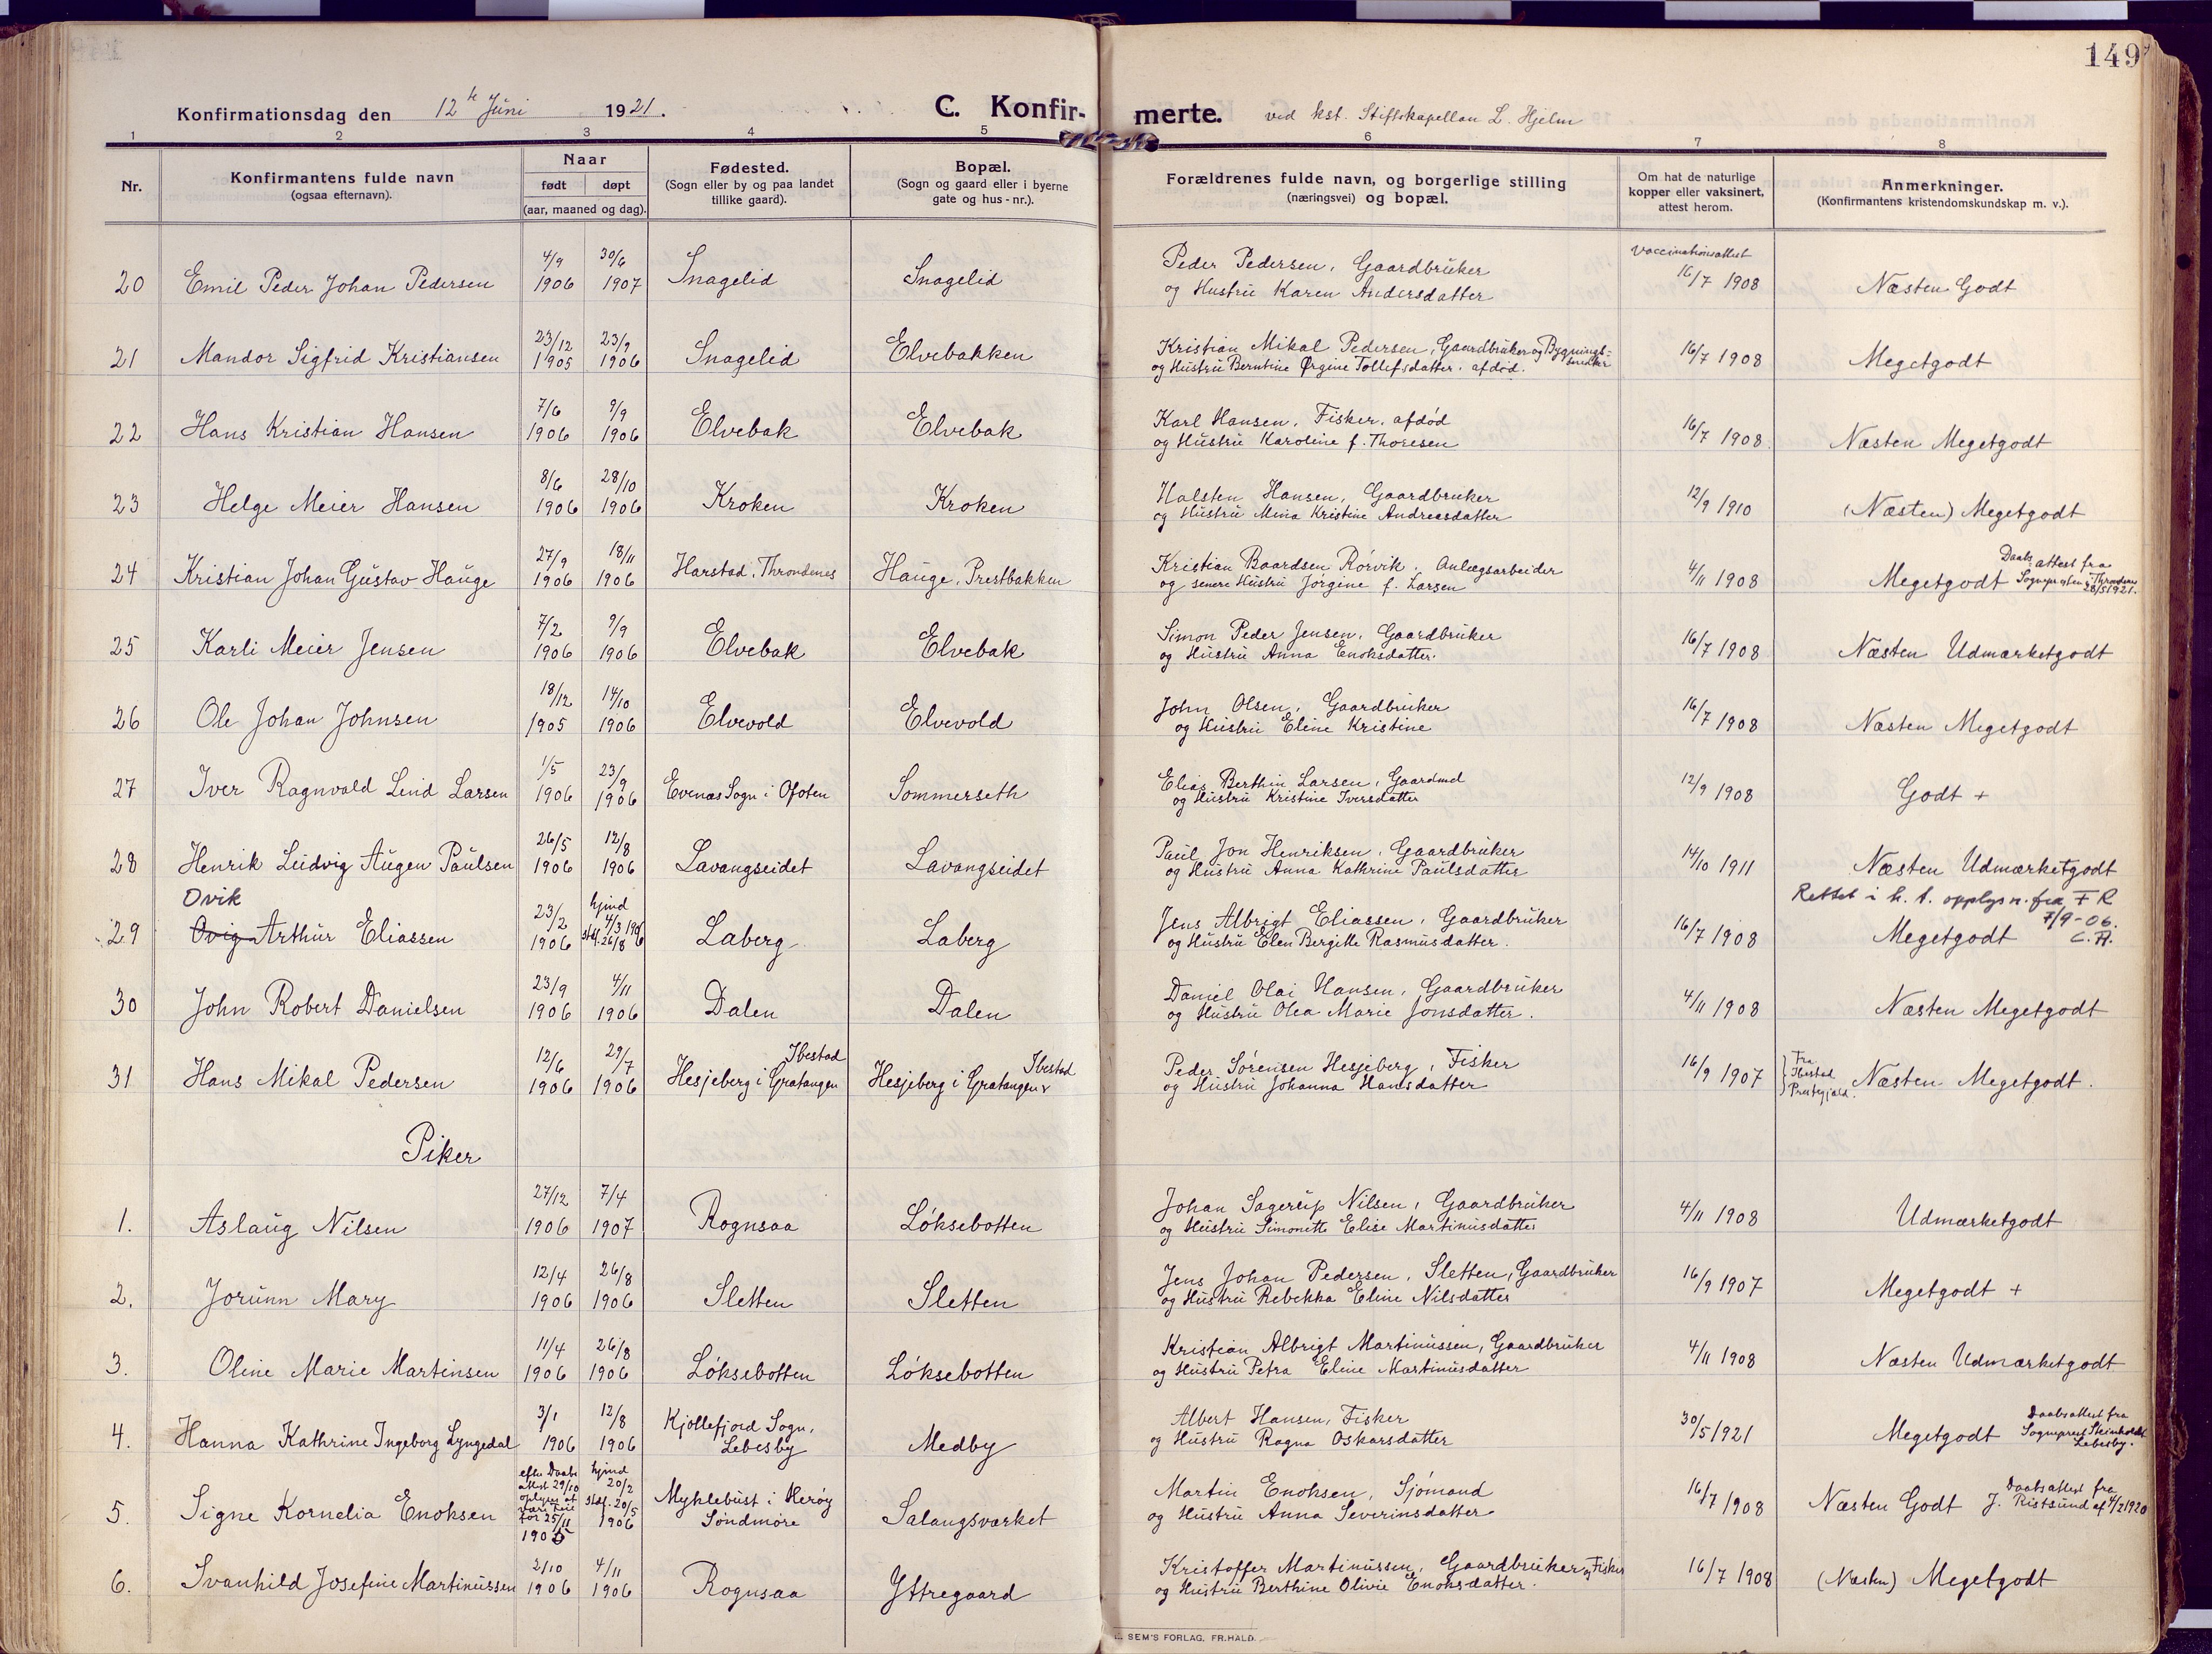 149
Konfirmationsdag den 12te Juni 1921. C. Konfir- merte. ved kst. Stiftskapellan L. Hjelm
1 2 3 4 5 6 7 8
Nr. Konfirmantens fulde navn (ogsaa efternavn). Naar født døpt (aar, maaned og dag). Fødested. (Sogn eller by og paa landet tillike gaard). Bopæl. (Sogn og gaard eller i byerne gate og hus-nr.). Forældrenes fulde navn, og borgerlige stilling (næringsvei) og bopæl. Om hat de naturlige kopper eller vaksinert, attest herom. Anmerkninger. (Konfirmantens kristendomskundskap m. v.).
20 Emil Peder Johan Pedersen 4/9 1906 30/6 1907 Snagelid Snagelid Peder Pedersen, Gaardbruker og Hustru Karen Andersdatter Vaccinationsattest 16/7 1908 Næsten Godt
21 Mandor Sigfrid Kristiansen 23/12 1905 23/9 1906 Snagelid Elvebakken Kristian Mikal Pedersen, Gaardbruker og Bygningssnedker og Hustru Berntine Ørgine Tollefsdatter. afdød. 16/7 1908 Megetgodt
22 Hans Kristian Hansen 7/6 1906 9/9 1906 Elvebak Elvebak Karl Hansen, Fisker, afdød og Hustru Karoline f. Thoresen 16/7 1908. Næsten Megetgodt
23 Helge Meier Hansen 8/6 1906 28/10 1906 Kroken Kroken Halsten Hansen, Gaardbruker og Hustru Mina Kristine Andreasdatter 12/9 1910 (Næsten) Megetgodt
24 Kristian Johan Gustav Hauge 27/9 1906 18/11 1906 Harstad, Throndenes Hauge, Prestbakken Kristian Baardsen Rørvik, Anlægsarbeider og senere Hustru Jørgine f. Larsen 4/11 1908 Megetgodt Daabsattest fra Sognepresten i Throndenes 28/5 1921.
25 Karli Meier Jensen 7/2 1906 9/9 1906 Elvebak Elvebak Simon Peder Jensen, Gaardbruker og Hustru Anna Enoksdatter. 16/7 1908 Næsten Udmærketgodt
26 Ole Johan Johnsen 18/12 1905 14/10 1906 Elvevold Elvevold John Olsen, Gaardbruker og Hustru Eline Kristine 16/7 1908 Næsten Megetgodt
27 Iver Ragnvald Lind Larsen 1/5 1906 23/9 1906 Evenæs Sogn i Ofoten Sommerseth Elias Berthin Larsen, Gaardmd og Hustru Kristine Iversdatter 12/9 1908 Godt +
28 Henrik Ludvig Augen Paulsen 26/5 1906 12/8 1906 Lavangseidet Lavangseidet Paul Jon Henriksen, Gaardbruker og Hustru Anna Kathrine Paulsdatter 14/10 1911 Næsten Udmærketgodt
29 Ovik Ovig Arthur Eliassen 23/2 1906 hjmd 4/3 1906 stdf. 26/8 Laberg Laberg Jens Albrigt Eliassen, Gaardbruker og Hustru Elen Bergitte Rasmusdatter. 16/7 1908 Megetgodt Rettet i h. t. opplysn. fra F R 7/9-06. C.A.
30 John Robert Danielsen 23/9 1906 4/11 1906 Dalen Dalen Daniel Olai Hansen, Gaardbruker og Hustru Olea Marie Jonsdatter. 4/11 1908 Næsten Megetgodt
31 Hans Mikal Pedersen 12/6 1906 29/7 1906 Hesjeberg i Gratangen Ibestad Hesjeberg i Gratangen Ibestad Peder Sørensen Hesjeberg, Fisker og Hustru Johanna Hansdatter 16/9 1907 Fra Ibestad Prestegjæld. Næsten Megetgodt.
Piker
1. Aslaug Nilsen 27/12 1906 7/4 1907 Rognsaa Løksebotten Johan Sagerup Nilsen, Gaardbruker og Hustru Simonette Elise Martinusdatter 4/11 1908 Udmærketgodt
2. Jorunn Mary 12/4 1906 26/8 1906 Sletten Sletten Jens Johan Pedersen, Sletten, Gaardbruker og Hustru Rebekka Eline Nilsdatter 16/9 1907 Megetgodt +
3. Oline Marie Martinsen 11/4 1906 26/8 1906 Løksebotten Løksebotten Kristian Albrigt Martinussen, Gaardbruker og Hustru Petra Eline Martinusdatter 4/11 1908 Næsten Udmærketgodt
4. Hanna Kathrine Ingeborg Lyngedal 3/1 1906 12/8 1906 Kjøllefjord Sogn, Lebesby Medby Albert Hansen, Fisker og Hustru Ragna Oskarsdatter 30/5 1921 Megetgodt Daabsattest fra Sogneprest Steinholdt Lebesby.
5. Signe Kornelia Enoksen efter Daabsattest 29/10 oplyses at være feil før 25/11 1905 hjmd 20/2 stdf. 20/5 1906 Myklebust i Herøy Søndmøre Salangsværket Martin Enoksen, Sjømand og Hustru Anna Severinsdatter 16/7 1908 Næsten Godt Daabsattest fra J. Ristsund af 4/2 1920
6. Svanhild Josefine Martinussen 2/10 1906 4/11 1906 Rognsaa Yttregaard Kristoffer Martinussen, Gaardbruker og Fisker og Hustru Berthine Olivie Enoksdatter. 16/7 1908 (Næsten) Megetgodt
SEM'S FORLAG, FR.HALD.